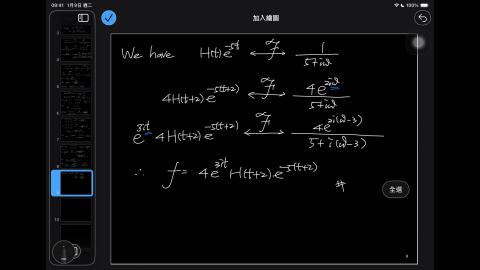 09:41 1月9日 週二
100%
加入繪圖
We have H(t)e^{-5t} ⟷^{ℱ} 1/(5+iω)
4H(t+2)e^{-5(t+2)} ⟷^{ℱ} 4e^{2iω}/(5+iω)
e^{3it} 4H(t+2)e^{-5(t+2)} ⟷^{ℱ} 4e^{2i(ω-3)}/(5+i(ω-3))
∴ f = 4e^{3it} H(t+2)e^{-5(t+2)} #
全選
9
10